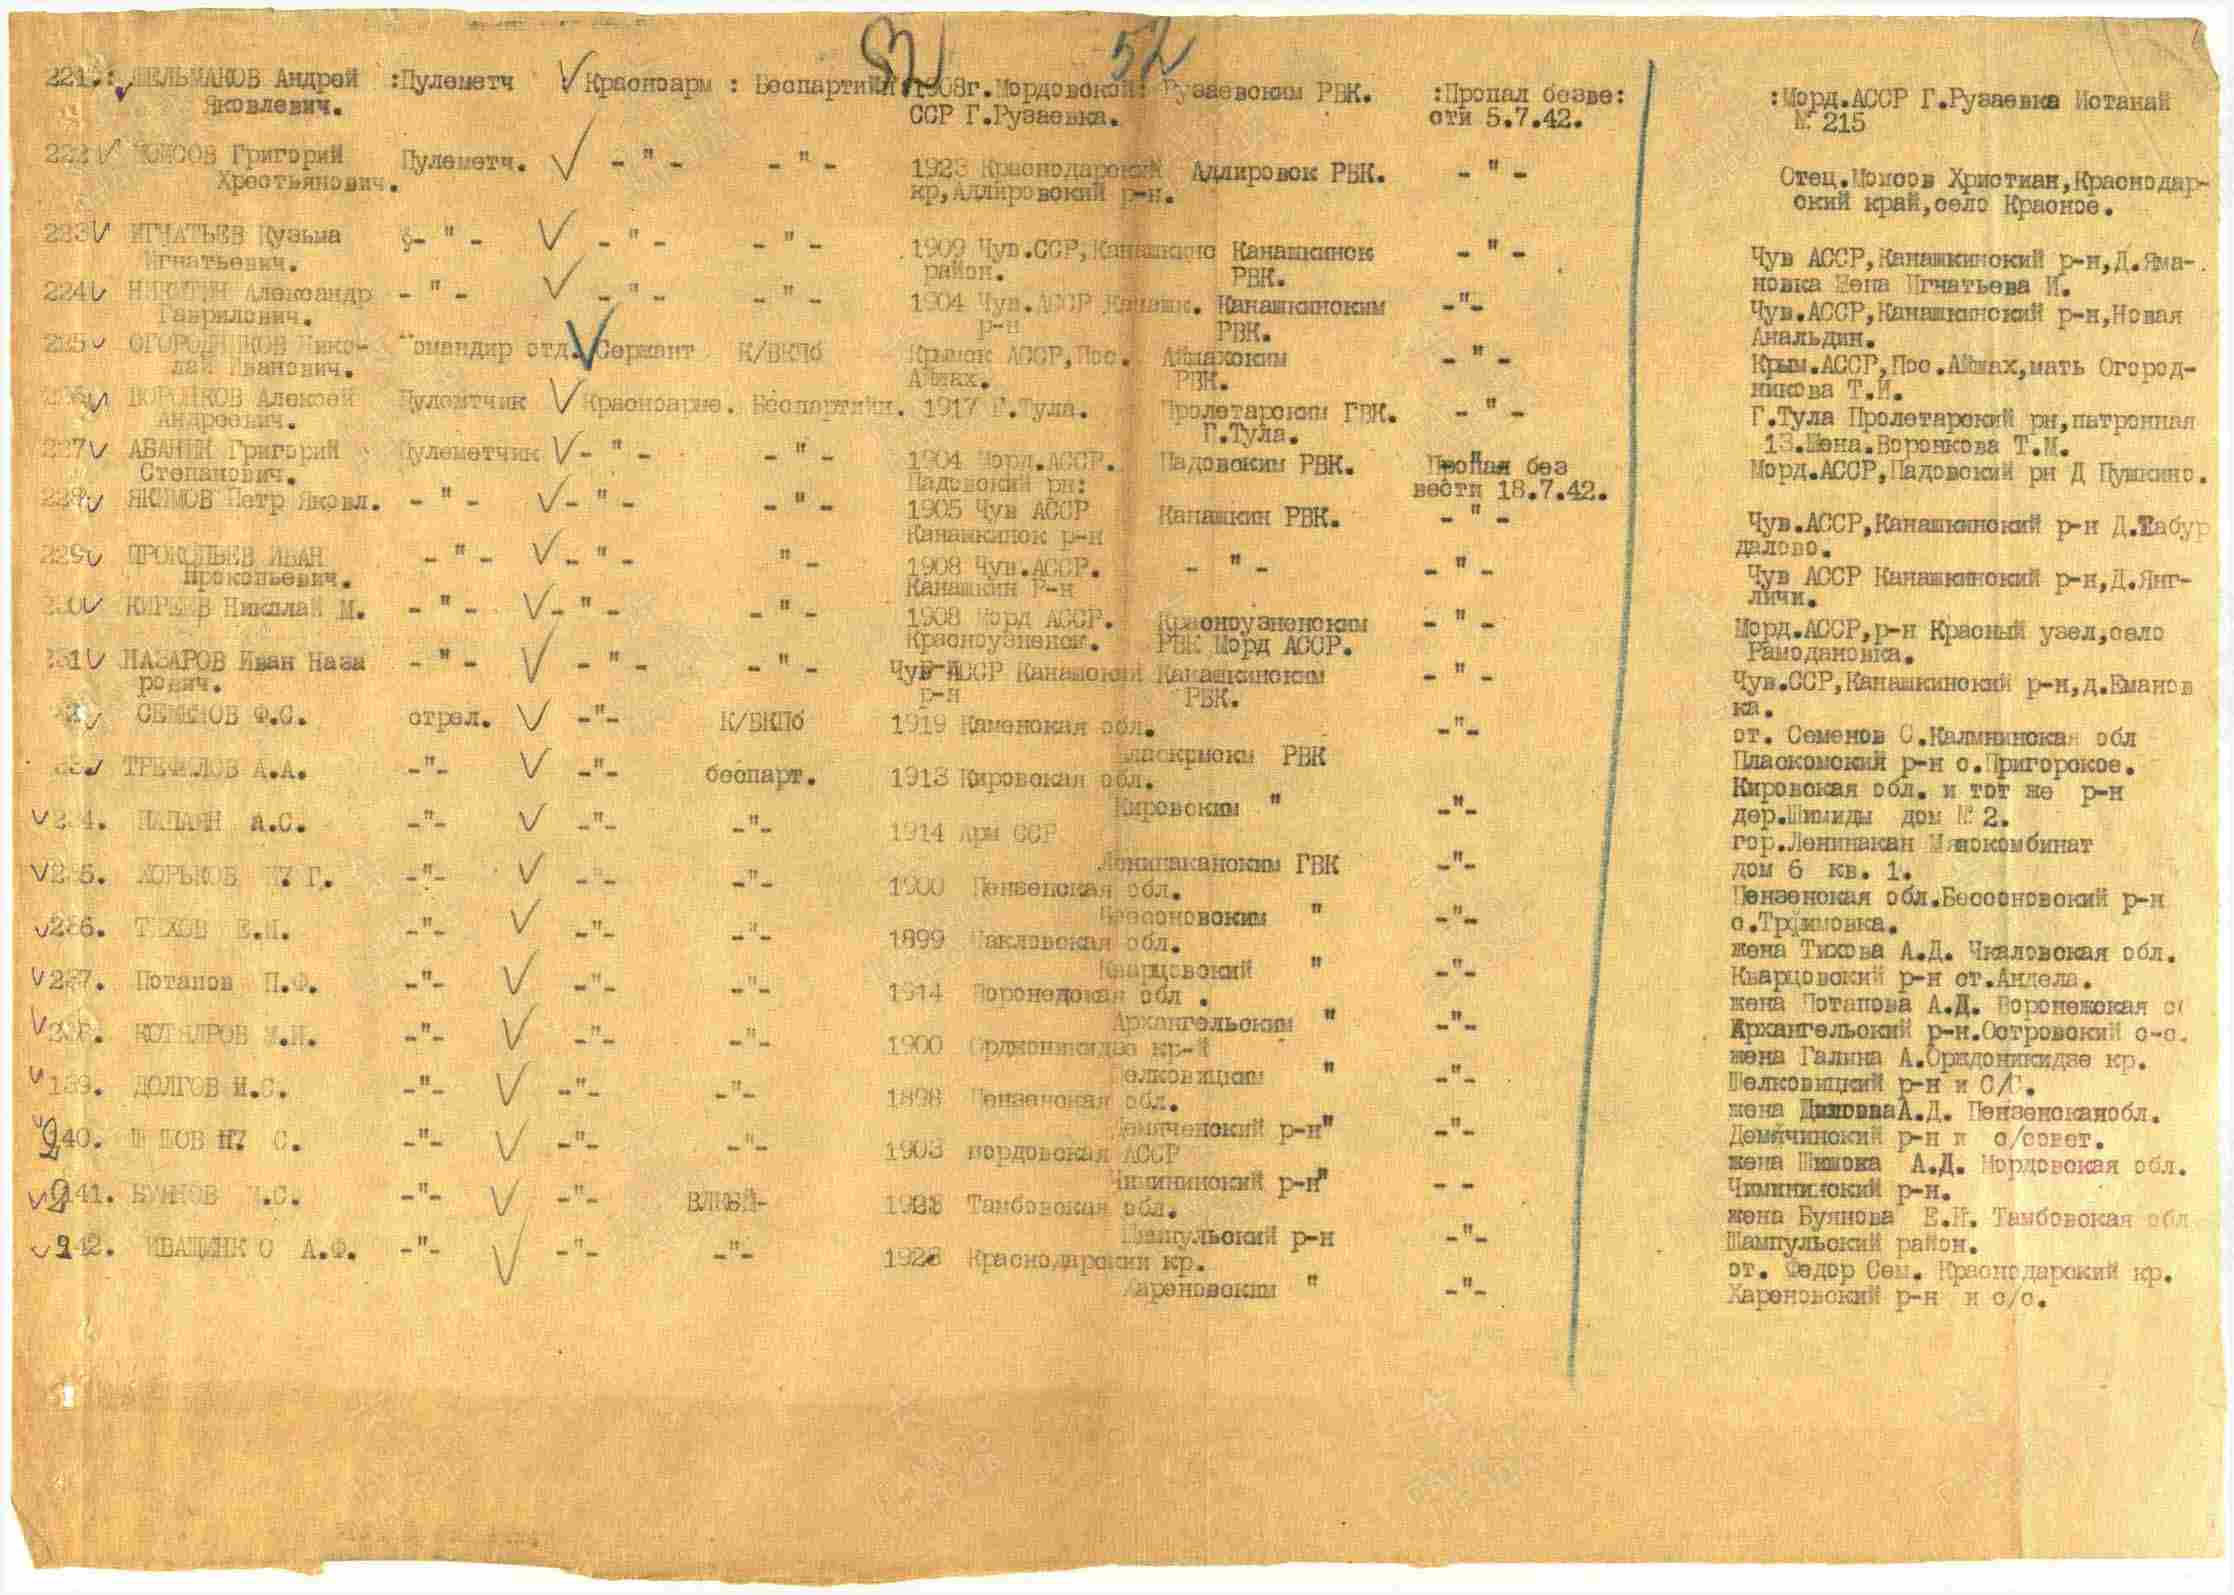 52
221.: ШЕЛЬМАКОВ Андрей :Пулеметч Красноарм : Беспартийн 1908г.Мордовской: Рузаевским РВК. :Пропал безве: :Морд.АССР Г.Рузаевка Истанай
Яковлевич. ССР Г.Рузаевка. сти 5.7.42. № 215
222 МОИСОВ Григорий Пулеметч. - " - - " - 1923 Краснодарский Адлировск РВК. - " - Отец.Моисов Христиан,Краснодар-
Хрестьянович. кр,Адлировский р-н. ский край,село Красное.
223 ИГНАТЬЕВ Кузьма - " - - " - - " - 1909 Чув.ССР,Канашкинс Канашкинск - " - Чув АССР,Канашкинский р-н,Д.Яма-
Игнатьевич. район. РВК. новка Жена Игнатьева И.
224 НИКИТИН Александр - " - - " - - " - 1904 Чув.АССР Канашк. Канашкинским -"- Чув.АССР,Канашкинский р-н,Новая
Гаврилович. р-н РВК. Анальдин.
225 ОГОРОДНИКОВ Нико- Командир отд. Сержант К/ВКПб Крымск АССР,Пос. Аймахским - " - Крым.АССР,Пос.Аймах,мать Огород-
лай Иванович. Аймах. РВК. никова Т.И.
226 ВОРОНКОВ Алексей Пулеметчик Красноарме. Беспартийн. 1917 Г.Тула. Пролетарским ГВК. - " - Г.Тула Пролетарский рн,патронная
Андреевич. Г.Тула. 13.Жена.Воронкова Т.М.
227 АВАНИН Григорий Пулеметчик - " - - " - 1904 Морд.АССР. Падовским РВК. Пропал без Морд.АССР,Падовский рн Д Пушкино.
Степанович. Падовский рн: вести 18.7.42.
228 ЯКИМОВ Петр Яковл. - " - - " - - " - 1905 Чув АССР Канашкин РВК. - " - Чув.АССР,Канашкинский р-н Д.Шабур
Канашкинск р-н далово.
229 ПРОКОПЬЕВ ИВАН - " - - " - " - 1908 Чув.АССР. - " - - " - Чув АССР Канашкинский р-н,Д.Янг-
Прокопьевич. Канашкин Р-н личи.
230 КИРЕЕВ Николай М. - " - - " - - " - 1908 Морд АССР. Красноузненским - " - Морд.АССР,р-н Красный узел,село
Красноузненск. РВК Морд АССР. Рамодановка.
231 НАЗАРОВ Иван Наза - " - - " - - " - Чув АССР Канашский Канашкинским - " - Чув.ССР,Канашкинский р-н,д.Еманов
рович. р-н РВК. ка.
СЕМЕНОВ Ф.С. стрел. -"- К/ВКПб 1919 Каменская обл. -"- от. Семенов С.Калининская обл
РВК Пласкомский р-н с.Пригорское.
ТРЕФИЛОВ А.А. -"- -"- беспарт. 1913 Кировская обл. Кировская обл. и тот же р-н
Кировским " -"- дер.Шимиды дом № 2.
234. ПАПАЯН А.С. -"- -"- -"- 1914 Арм ССР гор.Ленинакан Мясокомбинат
Ленинаканским ГВК -"- дом 6 кв. 1.
235. ХОРЬКОВ Г. -"- -"- -"- 1900 Пензенская обл. Пензенская обл.Бессоновский р-н
Бессоновским " -"- с.Трфимовка.
236. ТИХОВ Е.И. -"- -"- -"- 1899 Чакловская обл. жена Тихова А.Д. Чкаловская обл.
Кварцовский " -"- Кварцовский р-н ст.Андела.
237. Потапов П.Ф. -"- -"- -"- 1914 Воронедская обл . жена Потапова А.Д. Воронежская о
Архангельским " -"- Архангельский р-н.Островский с-с.
238. КОТЛЯРОВ М.И. -"- -"- -"- 1900 Орджоникидзе кр-й жена Галина А.Орждоникидзе кр.
Шелковицким " -"- Шелковицкий р-н и С/С.
139. ДОЛГОВ И.С. -"- -"- -"- 1898 Пензенская обл. жена А.Д. Пензенскаяобл.
Демяченский р-н" -"- Демячинский р-н и с/совет.
240. С. -"- -"- -"- 1903 Мордовская АССР жена Шишова А.Д. Мордовская обл.
Чимининский р-н" - - Чимининский р-н.
241. БУЯНОВ .С. -"- -"- Тамбовская обл. жена Буянова Е.Н. Тамбовская обл
Шампульский р-н -"- Шампульский район.
242. ИВАЩЕНКО А.Ф. -"- -"- -"- 1923 Краснодарский кр. от. Федор Сем. Краснодарский кр.
Хареновским " -"- Хареновский р-н и с/с.